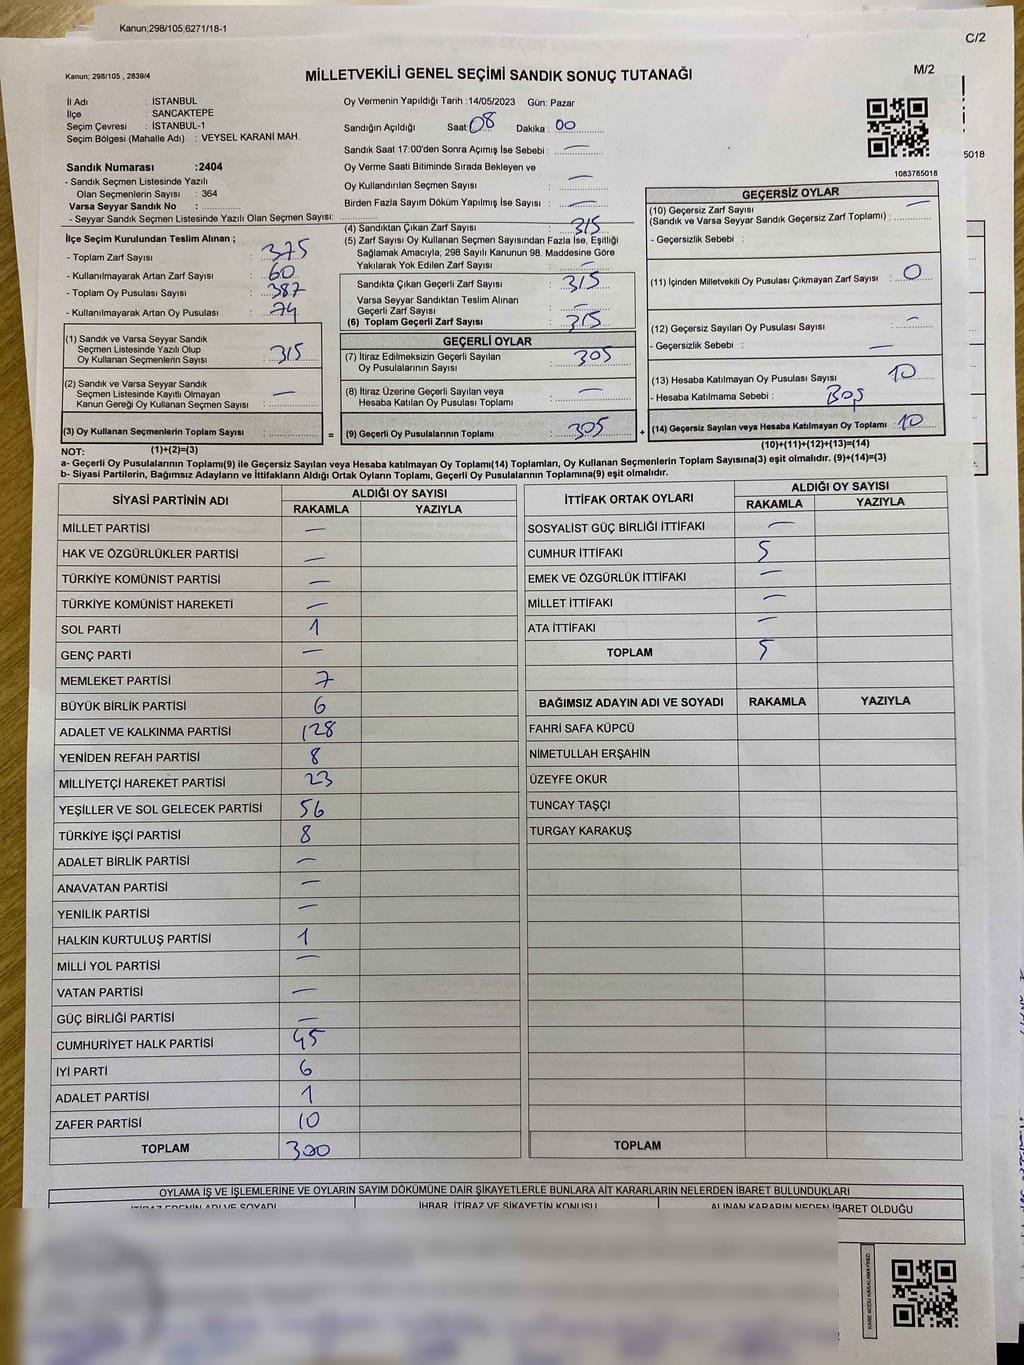 Kanun;298/105,6271/18-1
C/2
Kanun; 298/105 , 2839/4
MİLLETVEKİLİ GENEL SEÇİMİ SANDIK SONUÇ TUTANAĞI
M/2
İl Adı : İSTANBUL
İlçe : SANCAKTEPE
Seçim Çevresi : İSTANBUL-1
Seçim Bölgesi (Mahalle Adı) : VEYSEL KARANİ MAH.
Sandık Numarası :2404
- Sandık Seçmen Listesinde Yazılı
Olan Seçmenlerin Sayısı : 364
Varsa Seyyar Sandık No :
- Seyyar Sandık Seçmen Listesinde Yazılı Olan Seçmen Sayısı:
Oy Vermenin Yapıldığı Tarih :14/05/2023 Gün: Pazar
Sandığın Açıldığı Saat: 08 Dakika : 00
Sandık Saat 17:00'den Sonra Açımış İse Sebebi : —
Oy Verme Saati Bitiminde Sırada Bekleyen ve
Oy Kullandırılan Seçmen Sayısı : —
Birden Fazla Sayım Döküm Yapılmış İse Sayısı : —
5018
1083785018
İlçe Seçim Kurulundan Teslim Alınan ;
- Toplam Zarf Sayısı : 375
- Kullanılmayarak Artan Zarf Sayısı : 60
- Toplam Oy Pusulası Sayısı : 387
- Kullanılmayarak Artan Oy Pusulası : 74
(1) Sandık ve Varsa Seyyar Sandık
Seçmen Listesinde Yazılı Olup
Oy Kullanan Seçmenlerin Sayısı : 315
(2) Sandık ve Varsa Seyyar Sandık
Seçmen Listesinde Kayıtlı Olmayan
Kanun Gereği Oy Kullanan Seçmen Sayısı : —
(3) Oy Kullanan Seçmenlerin Toplam Sayısı :
(4) Sandıktan Çıkan Zarf Sayısı : 315
(5) Zarf Sayısı Oy Kullanan Seçmen Sayısından Fazla İse, Eşitliği
Sağlamak Amacıyla, 298 Sayılı Kanunun 98. Maddesine Göre
Yakılarak Yok Edilen Zarf Sayısı : —
Sandıkta Çıkan Geçerli Zarf Sayısı : 315
Varsa Seyyar Sandıktan Teslim Alınan
Geçerli Zarf Sayısı : —
(6) Toplam Geçerli Zarf Sayısı : 315
GEÇERLİ OYLAR
(7) İtiraz Edilmeksizin Geçerli Sayılan
Oy Pusulalarının Sayısı : 305
(8) İtiraz Üzerine Geçerli Sayılan veya
Hesaba Katılan Oy Pusulası Toplamı : —
= (9) Geçerli Oy Pusulalarının Toplamı : 305 +
GEÇERSİZ OYLAR
(10) Geçersiz Zarf Sayısı
(Sandık ve Varsa Seyyar Sandık Geçersiz Zarf Toplamı) : —
- Geçersizlik Sebebi :
(11) İçinden Milletvekili Oy Pusulası Çıkmayan Zarf Sayısı : 0
(12) Geçersiz Sayılan Oy Pusulası Sayısı : —
- Geçersizlik Sebebi : —
(13) Hesaba Katılmayan Oy Pusulası Sayısı : 10
- Hesaba Katılmama Sebebi : Boş
(14) Geçersiz Sayılan veya Hesaba Katılmayan Oy Toplamı : 10
NOT: (1)+(2)=(3) (10)+(11)+(12)+(13)=(14)
a- Geçerli Oy Pusulalarının Toplamı(9) ile Geçersiz Sayılan veya Hesaba katılmayan Oy Toplamı(14) Toplamları, Oy Kullanan Seçmenlerin Toplam Sayısına(3) eşit olmalıdır. (9)+(14)=(3)
b- Siyasi Partilerin, Bağımsız Adayların ve İttifakların Aldığı Ortak Oyların Toplamı, Geçerli Oy Pusulalarının Toplamına(9) eşit olmalıdır.
SİYASİ PARTİNİN ADI ALDIĞI OY SAYISI
RAKAMLA YAZIYLA
MİLLET PARTİSİ —
HAK VE ÖZGÜRLÜKLER PARTİSİ —
TÜRKİYE KOMÜNİST PARTİSİ —
TÜRKİYE KOMÜNİST HAREKETİ —
SOL PARTİ 1
GENÇ PARTİ —
MEMLEKET PARTİSİ 7
BÜYÜK BİRLİK PARTİSİ 6
ADALET VE KALKINMA PARTİSİ 128
YENİDEN REFAH PARTİSİ 8
MİLLİYETÇİ HAREKET PARTİSİ 23
YEŞİLLER VE SOL GELECEK PARTİSİ 56
TÜRKİYE İŞÇİ PARTİSİ 8
ADALET BİRLİK PARTİSİ —
ANAVATAN PARTİSİ —
YENİLİK PARTİSİ —
HALKIN KURTULUŞ PARTİSİ 1
MİLLİ YOL PARTİSİ —
VATAN PARTİSİ —
GÜÇ BİRLİĞİ PARTİSİ —
CUMHURİYET HALK PARTİSİ 45
İYİ PARTİ 6
ADALET PARTİSİ 1
ZAFER PARTİSİ 10
TOPLAM 300
İTTİFAK ORTAK OYLARI ALDIĞI OY SAYISI
RAKAMLA YAZIYLA
SOSYALİST GÜÇ BİRLİĞİ İTTİFAKI —
CUMHUR İTTİFAKI 5
EMEK VE ÖZGÜRLÜK İTTİFAKI —
MİLLET İTTİFAKI —
ATA İTTİFAKI —
TOPLAM 5
BAĞIMSIZ ADAYIN ADI VE SOYADI RAKAMLA YAZIYLA
FAHRİ SAFA KÜPCÜ
NİMETULLAH ERŞAHİN
ÜZEYFE OKUR
TUNCAY TAŞÇI
TURGAY KARAKUŞ
TOPLAM
OYLAMA İŞ VE İŞLEMLERİNE VE OYLARIN SAYIM DÖKÜMÜNE DAİR ŞİKAYETLERLE BUNLARA AİT KARARLARIN NELERDEN İBARET BULUNDUKLARI
İTİRAZ EDENİN ADI VE SOYADI İHBAR, İTİRAZ VE ŞİKAYETİN KONUSU ALINAN KARARIN NEDEN İBARET OLDUĞU